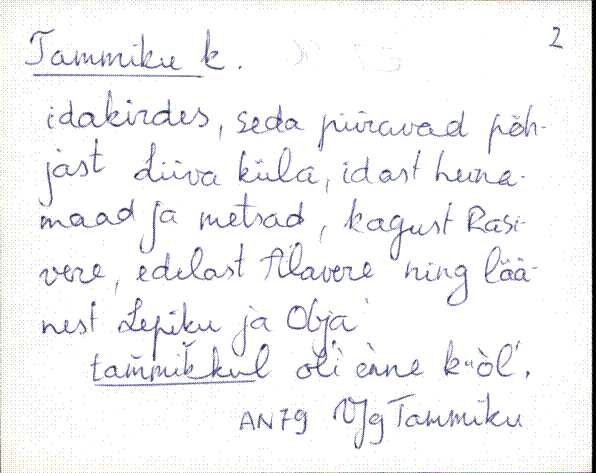 2
Tammiku k.
idakirdes, seda piiravad põh-
jast Liiva küla, idast heina-
maad ja metsad, kagust Rasi-
vere, edelast Alavere ning lää-
nest Lepiku ja Obja
tammikkul oli enne
AN79 VJg Tammiku